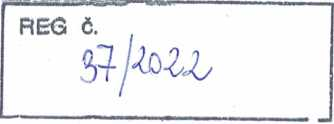 REG č.
37/2022